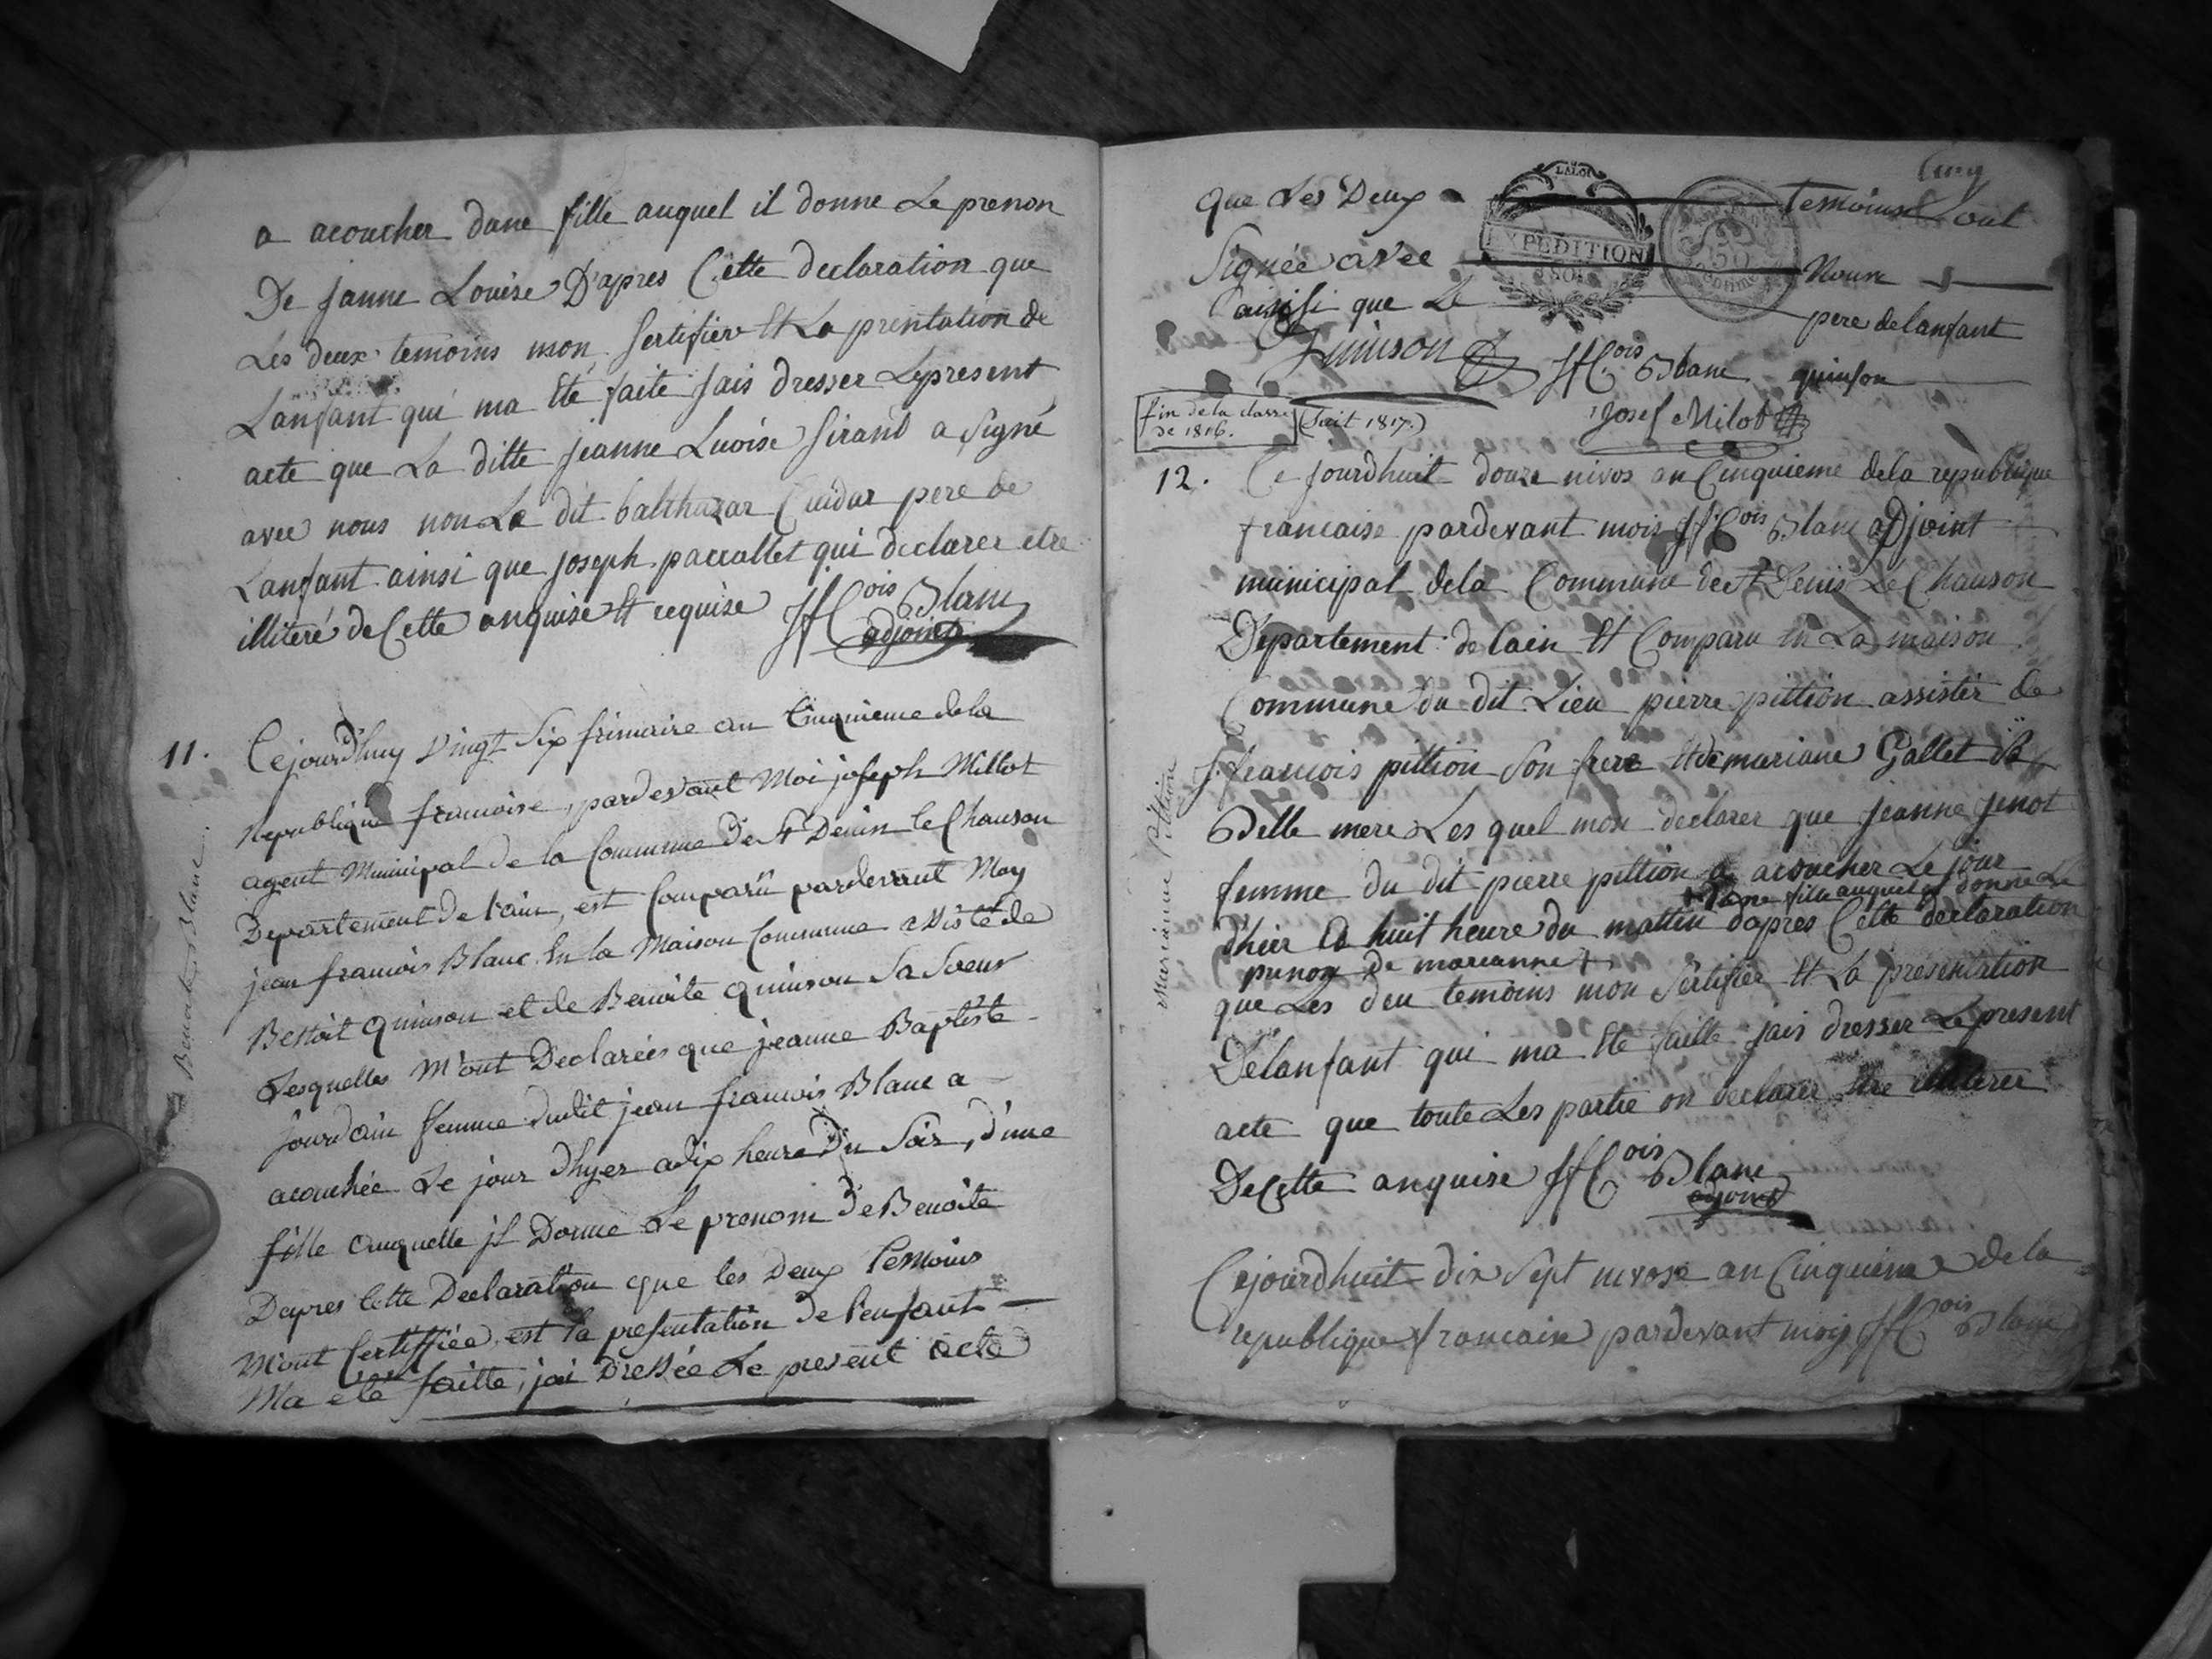 a acoucher dune fille auquel il donne Le prenon
De janne Louise D'apres Cette declaration que
Les deux temoins mon sertifier Et La prentation de
Lanfant qui ma Eté faite jais dresser Lepresent
acte que La ditte jeanne Luoise Sirand a Signé
avec nous non Le dit balthazar Cuidar pere de
Lanfant ainsi que joseph paccallet qui declarer etre
illiteré de Cette anquise Et requise JfCois Blanc
adjoint
11. Cejourd'huy vingt Six frimaire an Cinquieme de la
Republique francoise, pardevant Moi joseph Millot
agent Municipal de la Commune de St Denin le Chauson
Departement De l'ain, est Comparû pardevant Moy
jean francois Blanc En la Maison Commune assisté de
Benoit quinson et de Benoite quinson Sa Soeur
Lesquelles M'ont Declarées que jeanne Baptiste
jourdain femme dudit jean francois Blanc a
acouchée Le jour d'hyer adix heure Du Soir, d'une
fille auquelle jl Donne Le prenom De Benoite
Dapres Cette Declaration que les Deux Temoins
M'ont Certiffiée est la presentation de l'enfant
Ma ete faitte, jai Dressée Le present acte
Benoite Blanc
Cinq
que Les Deux Temoins Lont
Signée avec Nous
ainsi que Le pere de lanfant
LA LOI
EXPEDITION
50
Centimes
quinson JfCois Blanc quinson
Josef Milot
fin de la classe
de 1816.
(Suit 1817.)
12. Ce jourdhuit douze nivos an Cinquieme dela republique
francaise pardevant mois JfCois Blanc adjoint
municipal dela Commune de St Denis Le Chauson
Departement de lain Et Comparu En La maison
Commune du dit Lieu pierre pittion assister de
J. francois pittion Son frere Et de mariane Gallet Sa
Belle mere Les quel mon declarer que jeanne jenot
femme du dit pierre pittion a acoucher Le jour
dune fille auquel il donne Le
d'hier a huit heure du mattin dapres Cette declaration
prenon de marianne +
que Les deu temoins mon Sertifier Et La presentation
De lanfant qui ma Eté faitte jais dresser Le present
acte que toute Les partie on declarer Etre illiterer
De Cette anquise JfCois Blanc
adjoint
Marianne Pittion
Cejourdhuit dix Sept nivose an Cinquieme de la
republique francaise pardevant mois JfCois Blanc